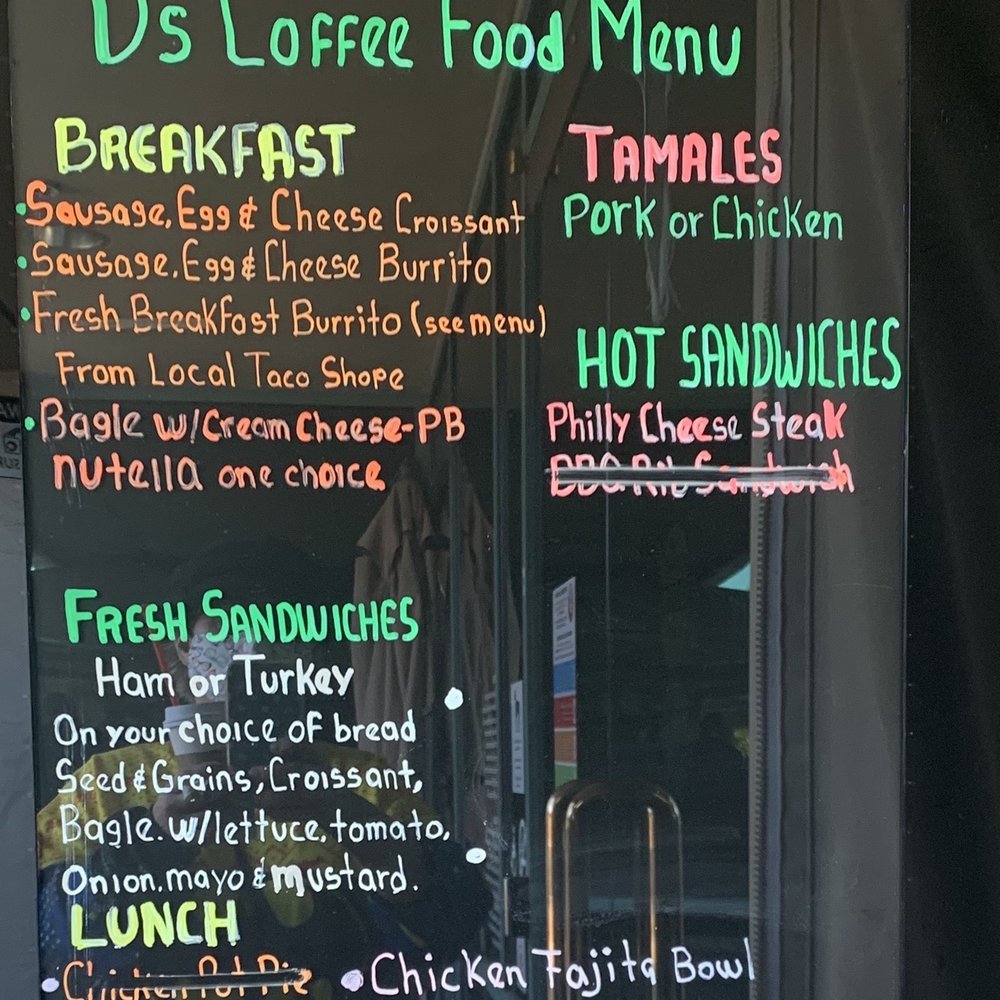 Ds Coffee Food Menu
BREAKFAST
Sausage, Egg & Cheese Croissant
Sausage, Egg & Cheese Burrito
Fresh Breakfast Burrito (see menu)
From Local Taco Shope
Bagle w/Cream Cheese-PB
nutella one choice
FRESH SANDWICHES
Ham or Turkey
On your choice of bread
Seed & Grains, Croissant,
Bagle. w/lettuce, tomato,
Onion, mayo & mustard.
LUNCH
Chicken Pot Pie
Chicken Fajita Bowl
TAMALES
Pork or Chicken
HOT SANDWICHES
Philly Cheese Steak
BBQ Rib Sandwish